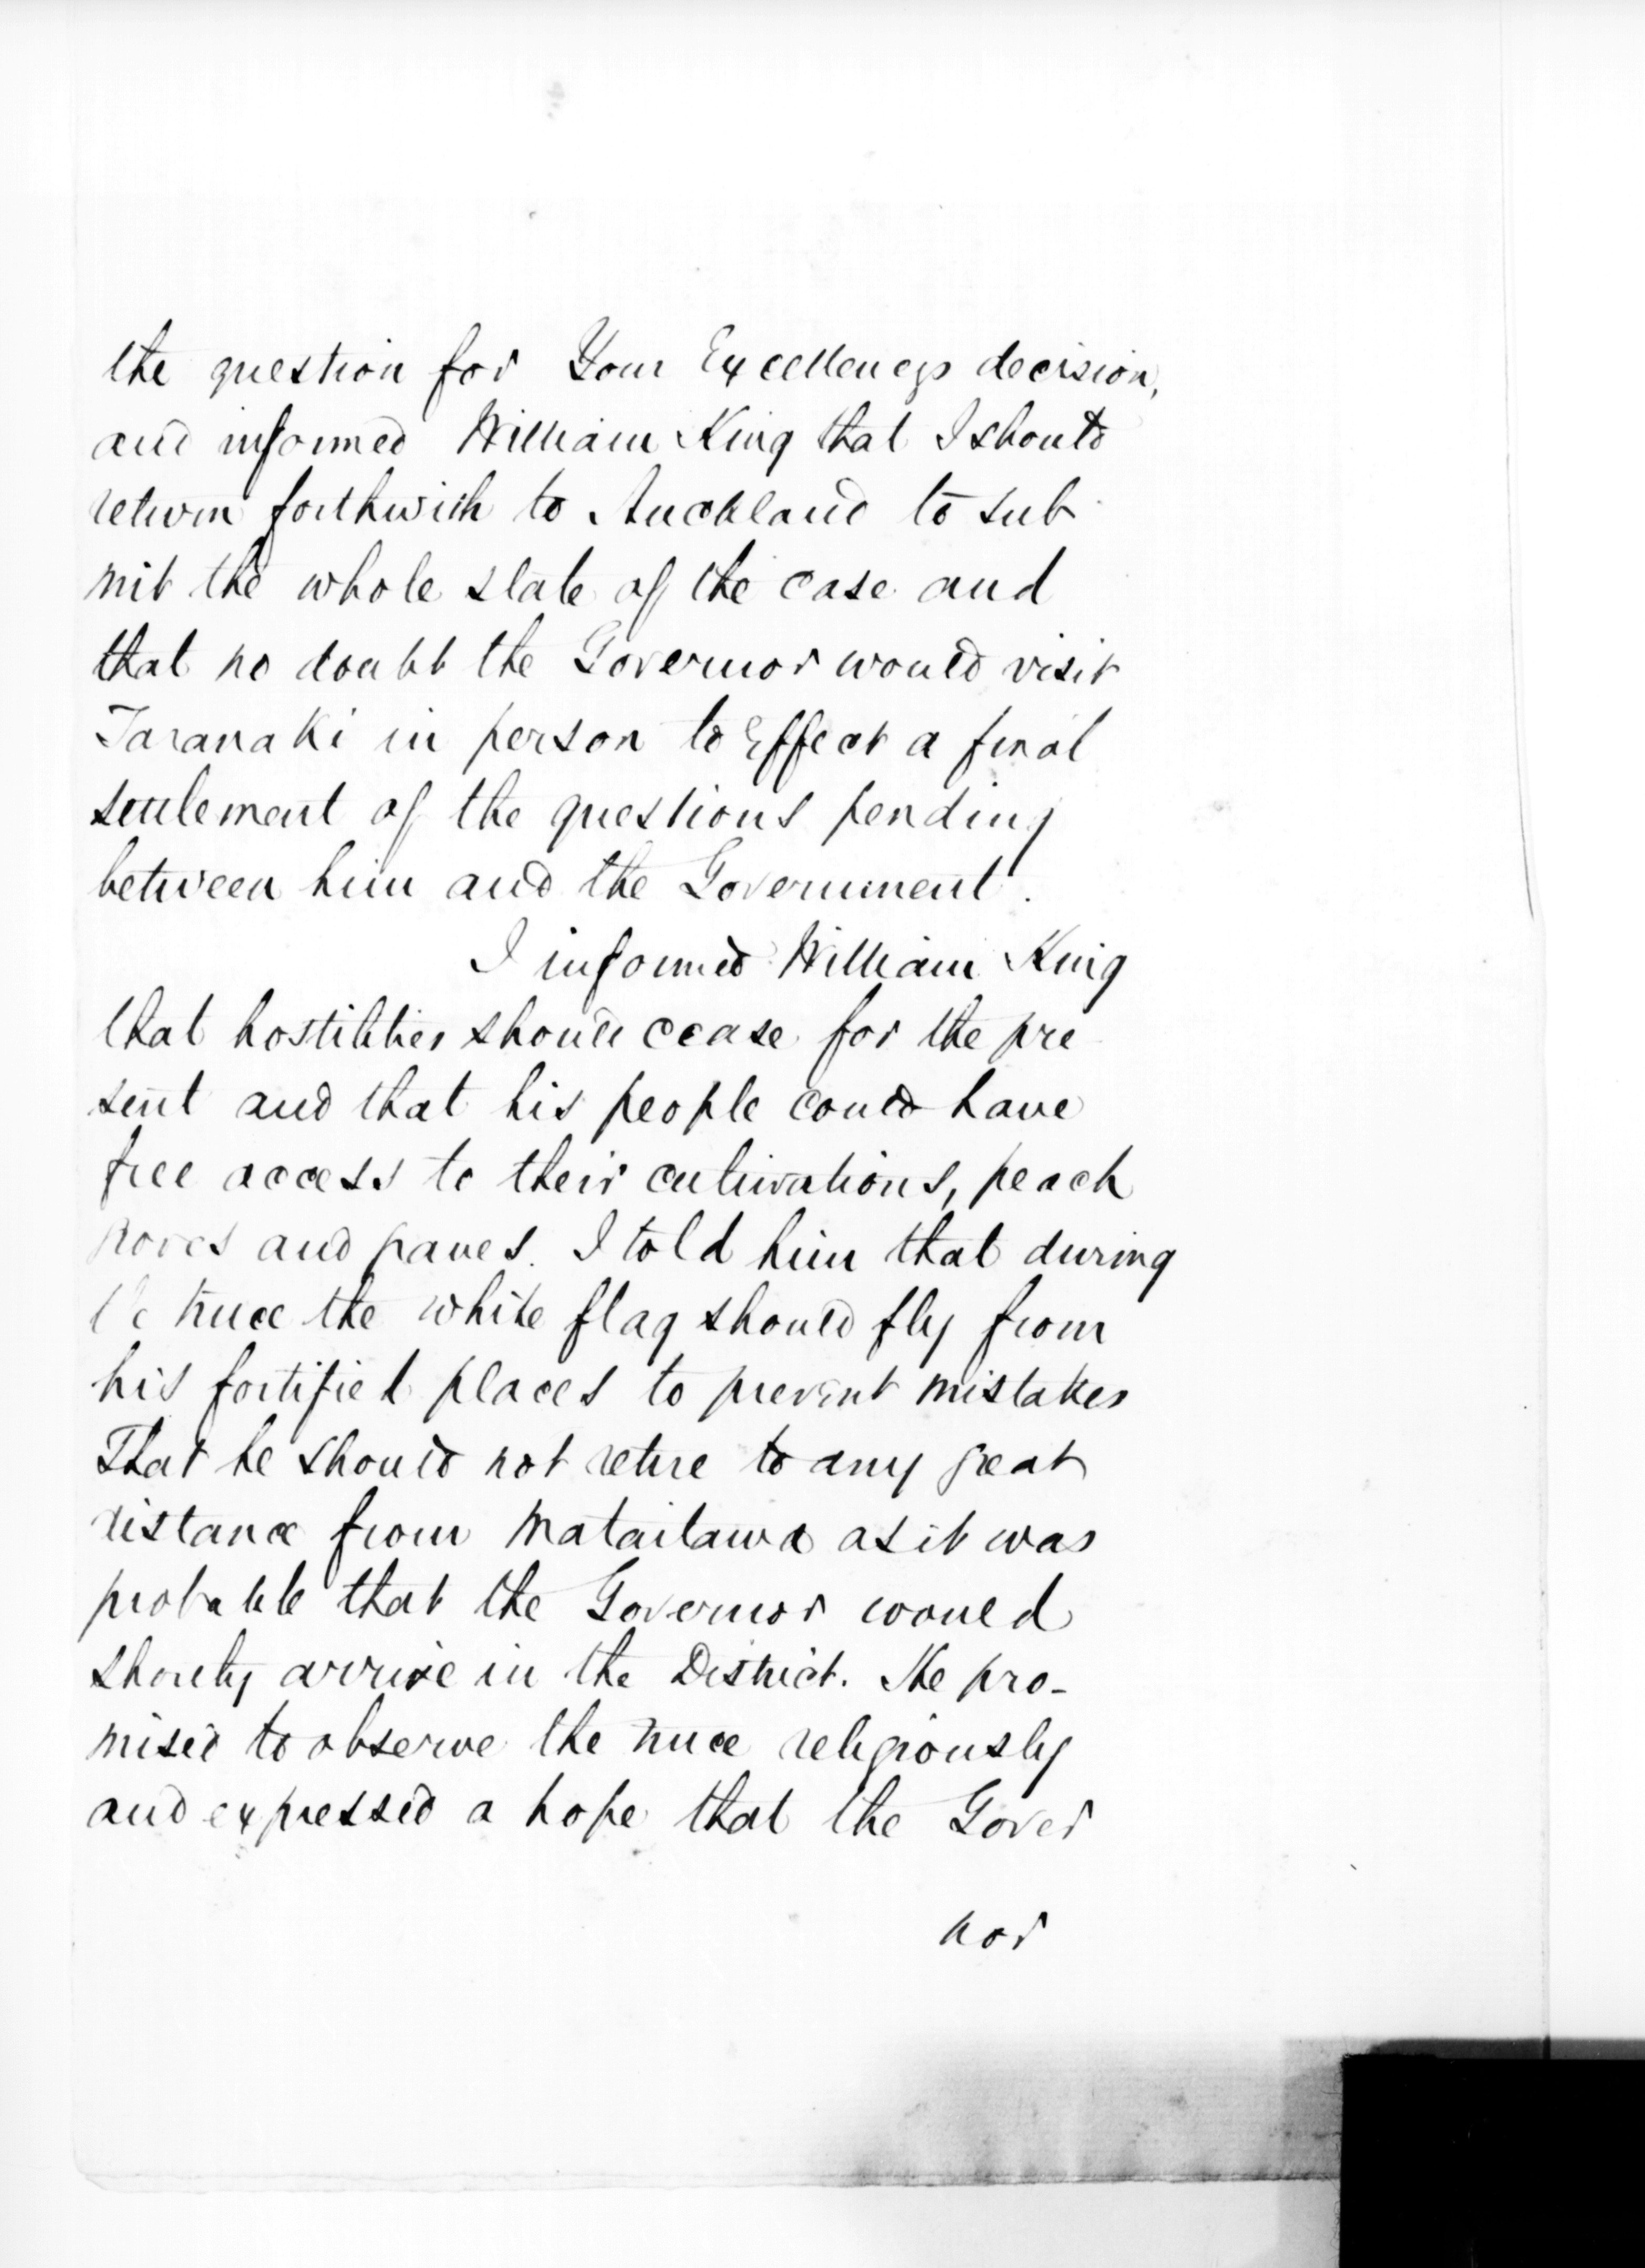 the question for Your Excellencys decision,
and informed William King that I should
return forthwith to Auckland to sub
mit the whole state of the case and
that no doubt the Governor would visit
Taranaki in person to Effect a final
settlement of the questions pending
between him and the Government.
I informed William King
that hostilities should cease for the pre
sent and that his people could have
free access to their cultivations, peach
groves and graves. I told him that during
the truce the white flag should fly from
his fortified places to prevent mistakes
That he should not retire to any great
distance from Mataitawa as it was
probable that the Governor would
shortly arrive in the District. He pro-
mised to observe the truce religiously
and expressed a hope that the Gover
nor